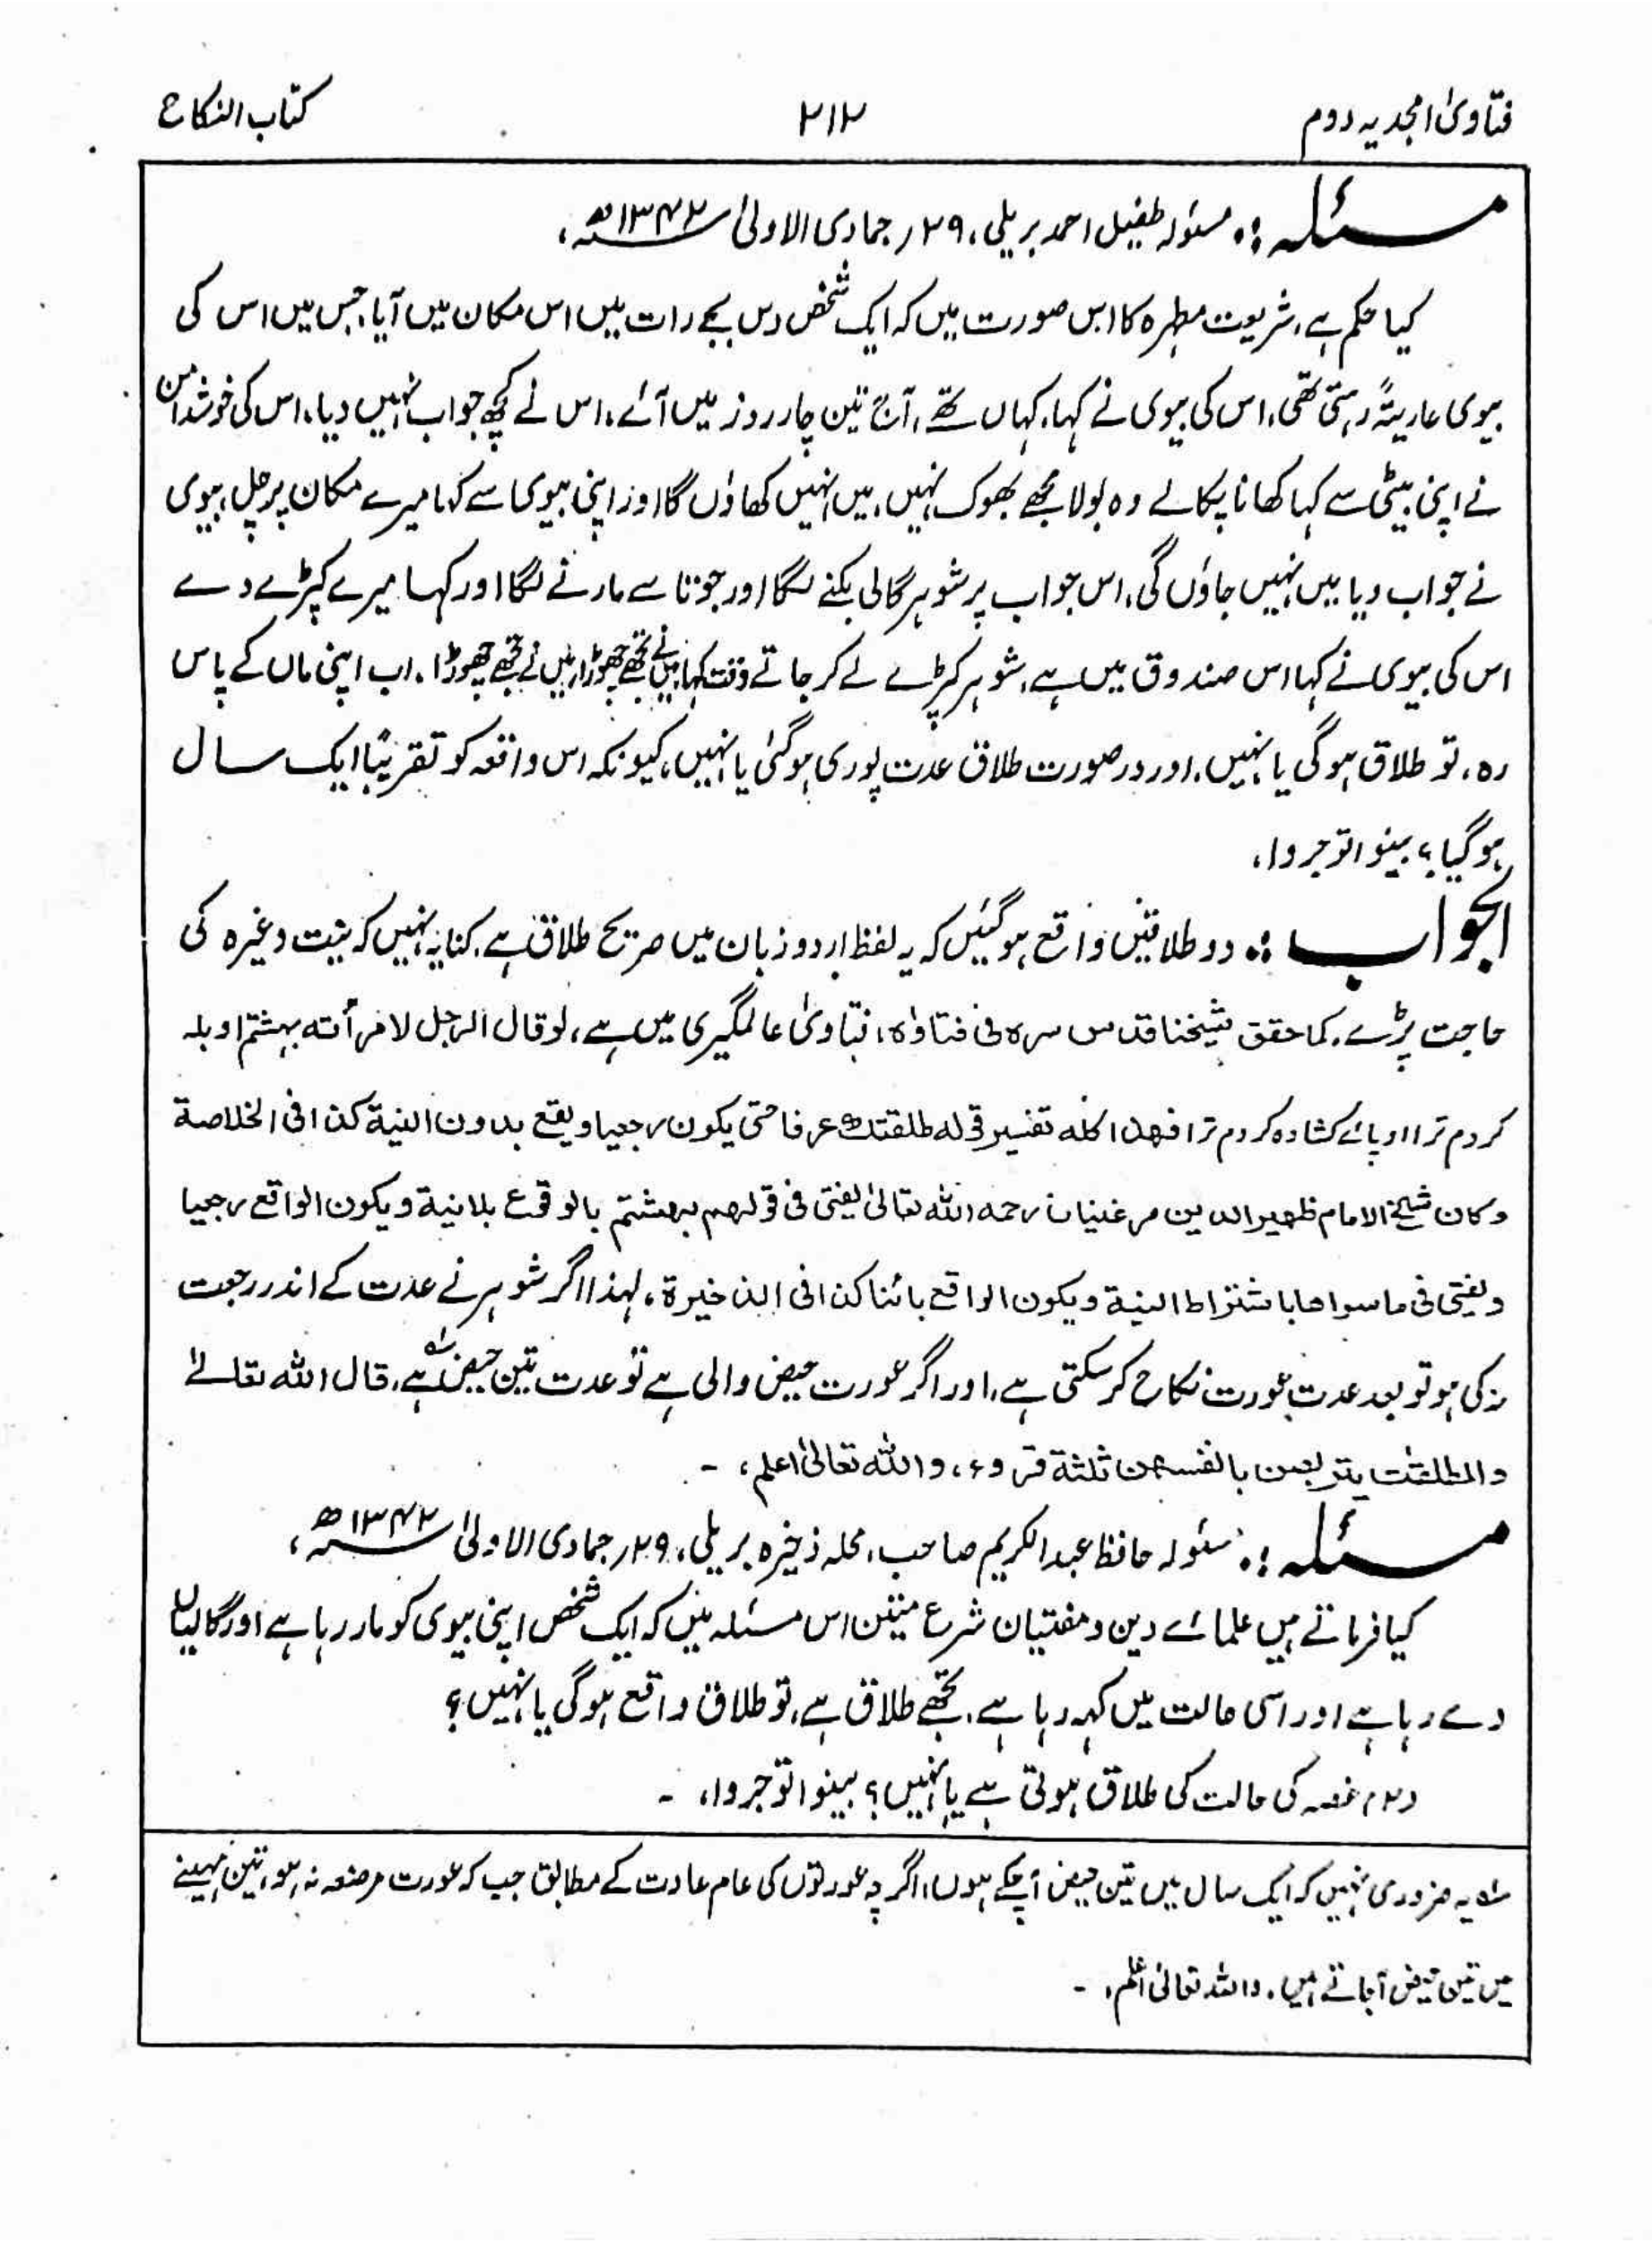 فتاویٰ امجدیہ دوم
۲۱۲
کتاب النکاح
مسئلہ :۔ مسئولہ طفیل احمد بریلی، ۲۹؍ جمادی الاولیٰ ۱۳۴۲ھ،
کیا حکم ہے، شریعت مطہرہ کا اس صورت میں کہ ایک شخص دس بجے رات میں اس مکان میں آیا، جس میں اس کی
بیوی عاریۃً رہتی تھی، اس کی بیوی نے کہا، کہاں تھے، آج تین چار روز میں آئے، اس نے کچھ جواب نہیں دیا، اس کی خوشدامن
نے اپنی بیٹی سے کہا کھانا پکا لے وہ بولا مجھے بھوک نہیں، میں نہیں کھاؤں گا اور اپنی بیوی سے کہا میرے مکان پر چل، بیوی
نے جواب دیا میں نہیں جاؤں گی، اس جواب پر شوہر گالی بکنے لگا اور جوتا سے مارنے لگا اور کہا میرے کپڑے دے
اس کی بیوی نے کہا اس صندوق میں ہے، شوہر کپڑے لے کر جاتے وقت کہا، میں نے تجھے چھوڑا، میں نے تجھے چھوڑا، اب اپنی ماں کے پاس
رہ، تو طلاق ہوگی یا نہیں، اور در صورت طلاق عدت پوری ہوگئی یا نہیں، کیونکہ اس واقعہ کو تقریباً ایک سال
ہوگیا؟ بینوا توجروا،
الجواب :۔ دو طلاقیں واقع ہوگئیں کہ یہ لفظ اردو زبان میں صریح طلاق ہے، کنایہ نہیں کہ نیت وغیرہ کی
حاجت پڑے، کما حقق شیخنا قدس سرہ فی فتاواہ، فتاویٰ عالمگیری میں ہے، لو قال الرجل لامرأتہ بہشتم او یلہ
کردم ترا او پائے کشادہ کردم ترا فھذا کلہ تفسیر قولہ طلقتک عرفا حتی یکون رجعیا ویقع بدون النیۃ کذا فی الخلاصۃ
وکان شیخ الامام ظھیر الدین مرغنیانی رحمہ اللہ تعالیٰ یفتی فی قولھم بہشتم بالوقوع بلانیۃ ویکون الواقع رجعیا
ویفتی فی ما سواھا باشتراط النیۃ ویکون الواقع بائنا کذا فی الذخیرۃ، لہذا اگر شوہر نے عدت کے اندر رجعت
نہ کی ہو تو بعد عدت عورت نکاح کر سکتی ہے، اور اگر عورت حیض والی ہے تو عدت تین حیض ہے، قال اللہ تعالےٰ
والمطلقٰت یتربصن بانفسھن ثلثۃ قروء، واللہ تعالیٰ اعلم، -
مسئلہ :۔ مسئولہ حافظ عبدالکریم صاحب، محلہ ذخیرہ بریلی، ۲۹؍ جمادی الاولیٰ ۱۳۴۲ھ،
کیا فرماتے ہیں علمائے دین ومفتیان شرع متین اس مسئلہ میں کہ ایک شخص اپنی بیوی کو مار رہا ہے اور گالیاں
دے رہا ہے اور اسی حالت میں کہہ رہا ہے، تجھے طلاق ہے، تو طلاق واقع ہوگی یا نہیں؟
(۲) غصہ کی حالت کی طلاق ہوتی ہے یا نہیں؟ بینوا توجروا، -
؎ یہ ضروری نہیں کہ ایک سال میں تین حیض آچکے ہوں، اگرچہ عورتوں کی عام عادت کے مطابق جب کہ عورت مرضعہ نہ ہو، تین مہینے
میں تین حیض آجاتے ہیں، واللہ تعالیٰ اعلم، -